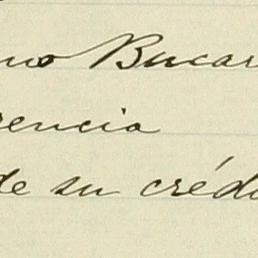 no Bucar
rencia
de su crédi